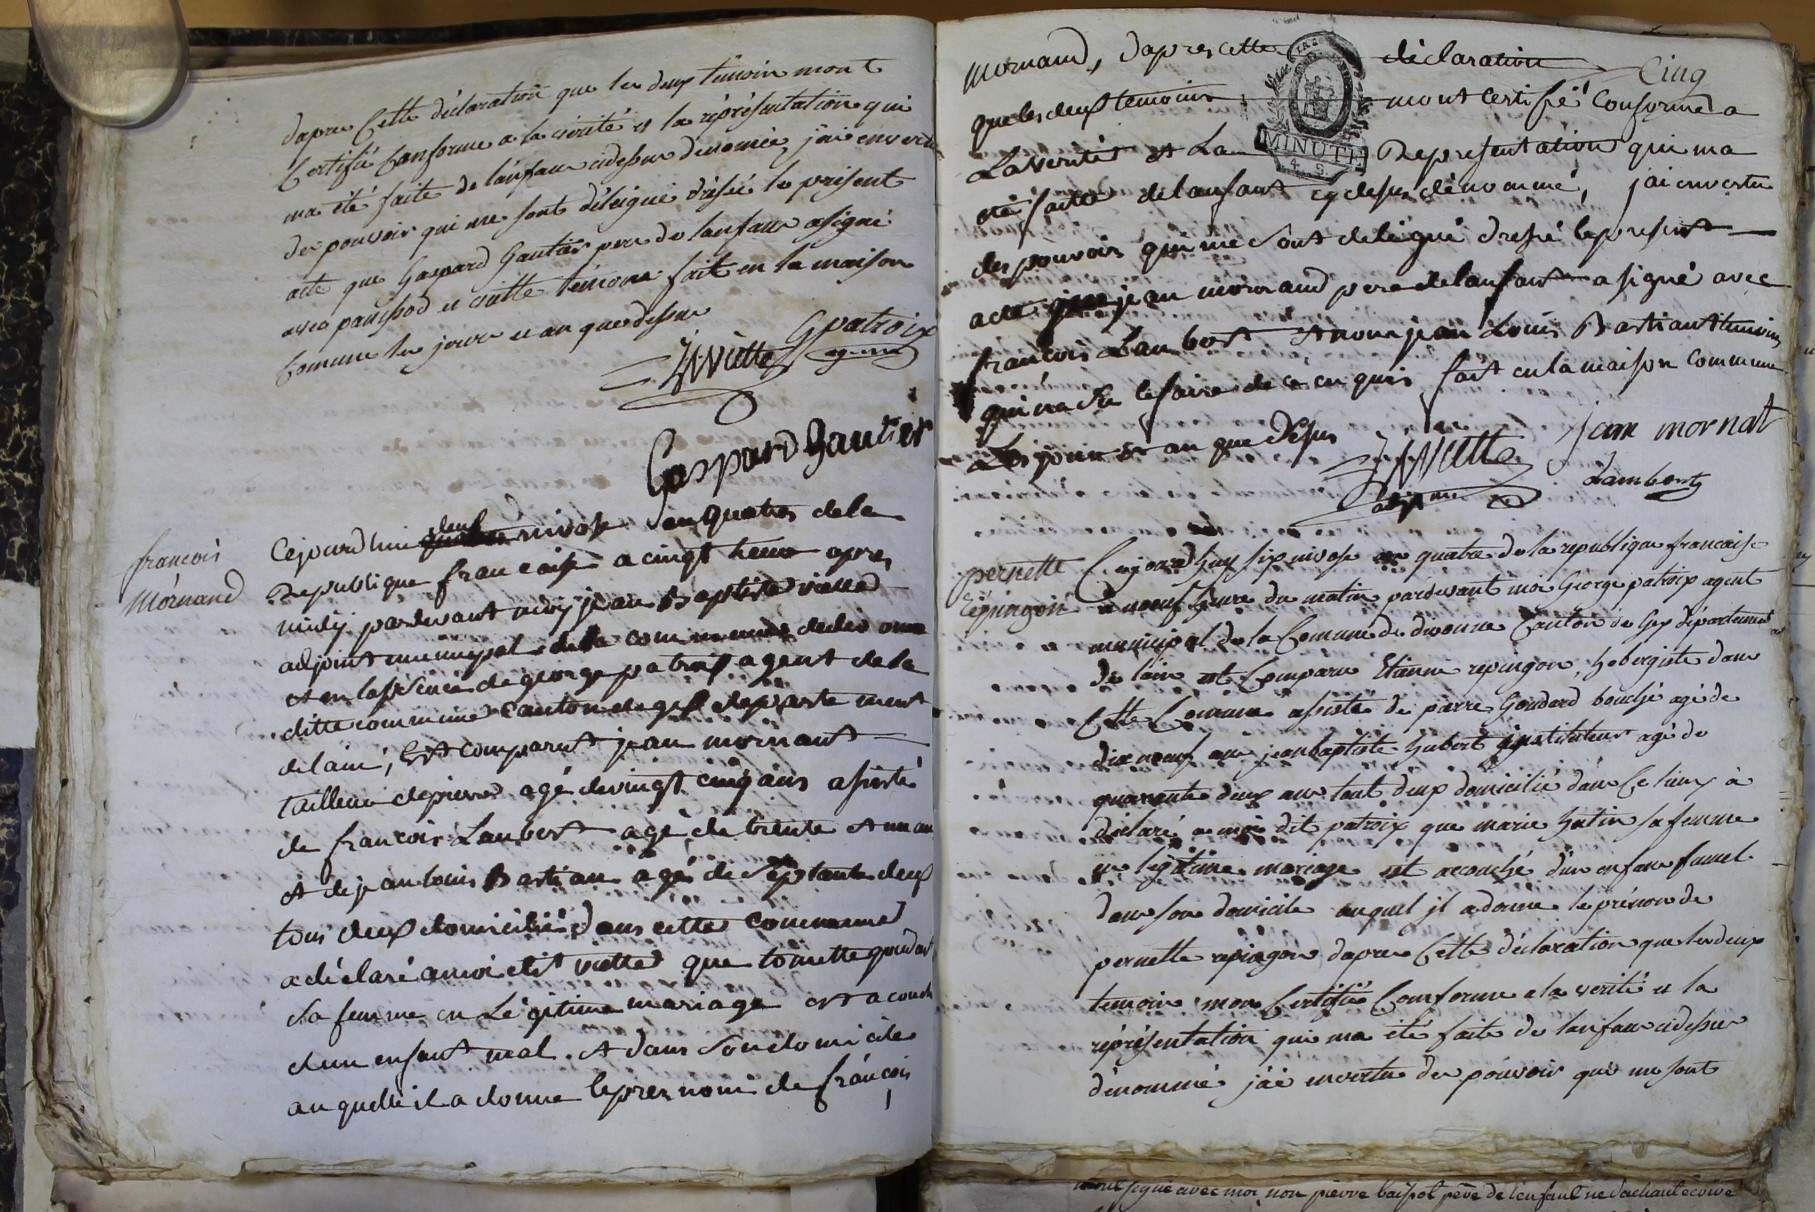 dapres Cette déclaration que les deux temoin mont
Certifié Conforme a la vérité et la réprésentation qui
ma été faite de lanfant cidessus dénomée, jai en vertu
des pouvoir qui me sont délégué drésée le présent
acte que Gaspard Gautier pere de lanfant a signé
avec panissod et viutte témoins fait en la maison
Comune les jour et an que dessus
JBViutte Gpatroix
agent
Gaspard Gautier
francois
Mornand
Cejourdhui deux nivose an quatre de la
Republique francaise a cinqt heure apres
midy pardevant moy jean Baptiste viutte
adjoint municipal de la commune de divonne
et en lapsence de george patroix agent de la
ditte commune Canton de gex departement
de lain, Est comparut jean mornant
tailleur de pierre agé de vingt cinq ans assisté
de francois Lambert agé de trente et un an
et de jean louis Bastian agé de Septante deux
tous deux domicilié dans cette commune
a déclaré a moi dit viutte que toinette goudar
sa femme en Légitime mariage est acouché
dun enfant mal. et dans son domicile
au quelle il a donne le prez nom de francois
mornand, dapres cette déclaration Cinq
que les deux temoins mont Certifié Conforme a
La verité et La Representation qui ma
été faitte de lanfant cy desus dénommé, jai en vertu
des pouvoir qui me sont delégué dressé le present
acte que jean mornand pere de lanfant a signé avec
francois Lambert et non jean Louis Bastiant temoins
qui na su le faire de ce en quis fait en la maison commune
Les jour et an que desus
MINUTE
JBViutte jean mornat
adjoint Lambert
pernette
répingon
Cejourdhuy six nivose an quatre de la republique francaise
a neuf heure du matin pardevant moi George patroix agent
municipal de la Comune de divonne Canton de Gex département
de lain est Comparu Etienne repingon, hobergiste dans
cette Comune assisté de pierre Goudard bouché agé de
dixneuf ans jeanbaptiste hubert institeteur agé de
quarante deux ans tout deux domicilié dans Ce lieux à
déclaré a moi dit patroix que marie hutin sa femme
en légitime mariage est acouché dun enfant femel
dans son domicile auquel jl a donné le prénom de
pernette repingon dapres Cette déclaration que les deux
temoin mon Certifiée Conforme a la vérité et la
réprésentation qui ma été faite de lanfant cidessus
dénommé jai en vertu des pouvoir qui me sont
signé avec moi non pierre baissot père de lenfant ne sachant écrire